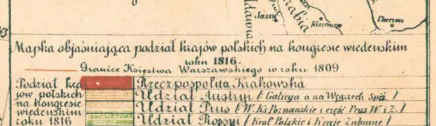 Jassy
Kiszniew
Cherson
Mapka objaśniająca podział krajów polskich na kongresie wiedeńskim
roku 1816.
Granice Księstwa Warszawskiego w roku 1809
Podział kra
jów polskich
na kongresie
wiedeńskim
roku 1816
Rzeczpospolita Krakowska
Udział Austrii (Galicya a na Węgrzech Spiż)
Udział Prus (W. Ks. Poznańskie i część Prus W. i Z.)
Udział Rossyi (Król. Polskie i Kraje Zabrane)